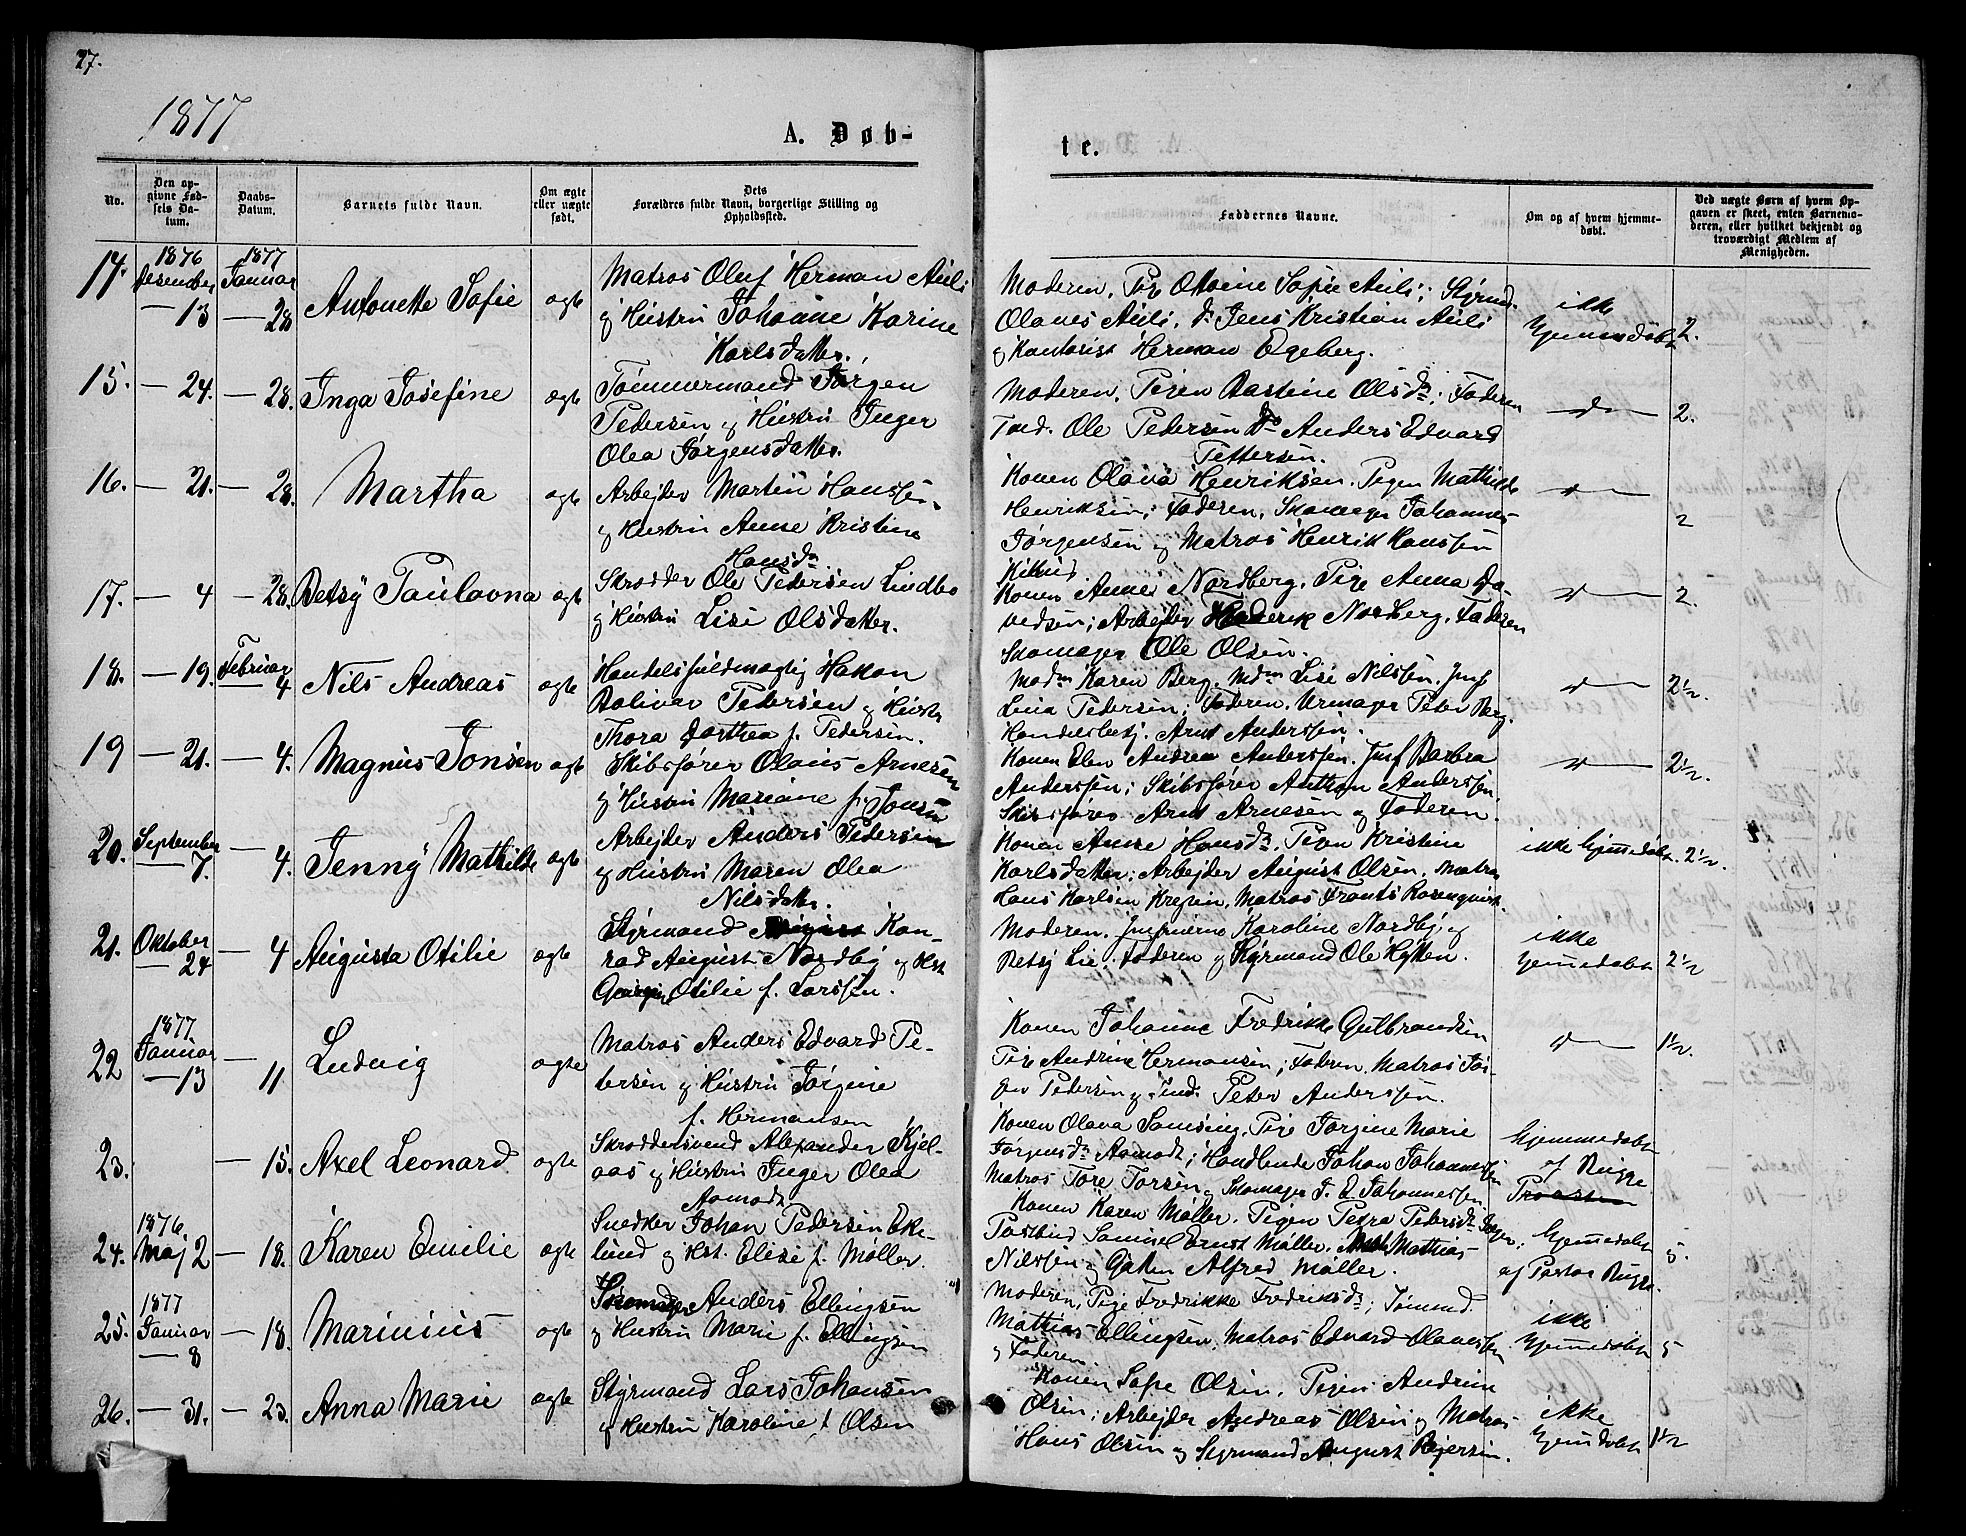 27.
1877
A. Døb-
te.
No.
Den opgivne Fødsels Datum.
Daabs-Datum.
Barnets fulde Navn.
Om ægte eller uægte født.
Dets Forældres fulde Navn, borgerlige Stilling og Opholdssted.
Faddernes Navne.
Om og af hvem hjemmedøbt.
Ved uægte Børn af hvem Opgaven er skeet, enten Barnemoderen, eller hvilket bekjendt og troværdigt Medlem af Menigheden.
14. 1876 Desember — 13 1877 Januar — 28 Antonette Sofie ægte
Matros Oluf Herman Auli
og Hustru Johanne Karine
Karlsdatter.
Moderen, Pige Sofie Auli; Styrmd.
Olaves Auli, do Jens Kristian Auli
og Kontorist Herman Egeberg.
ikke
hjemmedøbt 2.
15. — 24. — 28. Inga Josefine ægte
Tømmermand Jørgen
Pedersen og Hustru Inger
Olea Jørgensdatter.
Moderen, Pigen Bastine Olsdr; Faderen
Tmd. Ole Pedersen do Anders Edvard
Pettersen.
—do— 2.
16. — 21. — 28. Martha ægte
Arbejder Martin Hanssen
og Hustru Anne Kristine
Hansdr
Konen Olava Henriksen, Pigen Mathilde
Henriksen; Faderen, Skomager Johannes
Jørgensen og Matros Henrik Hanssen
2
17. — 4 — 28. Betsy Paulovna ægte
Skrædder Ole Pedersen Lindbo
og Hustru Lise Olsdatter.
Konen Anne Nordberg, Pige Anna Da-
vedsen; Arbejder Nordberg, Faderen
Skomager Ole Olsen.
2.
18. — 19. Februar — 4 Nils Andreas ægte
Handelsfuldmægtig Hakon
Bolivar Pedersen og Hustr
Thora Dorthea f. Pedersen.
Madm Karen Berg, Mdm Lise Nilssen, Jmf
Lina Pedersen; Faderen, Urmager Peter Berg,
Handelsbetj. Arnt Anderssen.
2½.
19 — 21. — 4. Magnus Jonsen ægte
Skibsfører Olaus Arnesen
og Hustru Mariane f. Jonsen
Konen Elen Andrea Anderssen, Jmf Barbra
Anderssen; Skibsfører Anthon Anderssen,
Skibsfører Arnt Arnesen og Faderen.
2½.
20. September — 7. — 4. Jenny Mathilde ægte
Arbejder Anders Pedersen
og Hustru Maren Olea
Nilsdatter.
Konen Anne Hansdr, Pigen Kristine
Karlsdatter; Arbejder August Olsen, Matros
Hans Karlsen, Matros Frants Rosenqvist.
ikke hjemmedøbt. 2½.
21. Oktober — 24 — 4 Augusta Otilie ægte
Styrmand Kon-
rad August Nordby og Hst
Otilie f. Larssen.
Moderen, Jomfruerne Karoline Nordby og
Betsy Lie; Faderen og Styrmand Ole
ikke
hjemmedøbt 2½
22 1877 Januar — 13 — 11 Ludvig ægte
Matros Anders Edvard Pe-
dersen og Hustru Jørgine
f. Hermansen
Konen Johanne Fredrikke Gulbrandsen
Pige Andrine Hermansen; Faderen, Matros Jør-
gen Pedersen og Tmd. Peter Anderssen.
1½.
23. — 15. Axel Leonard ægte
Skræddersvend Alexander Kjel-
aas og Hustru Inger Olea
Aamodt
Konen Olava Samsing, Pige Jørgine Marie
Jørgensdr Aamodt; Handlende Johan Johannessen
Matros Tore Torsen og Skomager J. E. Johannessen
hjemmedøbt
af Rugge
24. 1876 Maj 2 — 18. Karen Emilie ægte
Snedker Johan Pedersen Eke-
lund og Hst. Elise f. Møller.
Konen Karen Møller, Pigen Petra Pedersdr
Postbud Samuel Ernst Møller, Mathias
Nilssen og Alfred Møller.
hjemmedøbt
af Pastor Rugge. 5.
25. 1877 Januar — 8 — 18. Marinius ægte
Skomager Anders Ellingsen
og Hustru Marie f. Ellingsen
Moderen, Pige Fredrikke Fredriksdr; Tømmd.
Mathias Ellingsen, Matros Edvard Olavessen
og Faderen.
ikke
hjemmedøbt 5
26. — 31. — 25. Anna Marie ægte
Styrmand Lars Johansen
og Hustru Karoline f. Olsen
Konen Sofie Olsen, Pigen Andrine
Olsen; Arbejder Andreas Olsen og Matros
Hans Olsen og Styrmand August
ikke
hjemmedøbt 1½